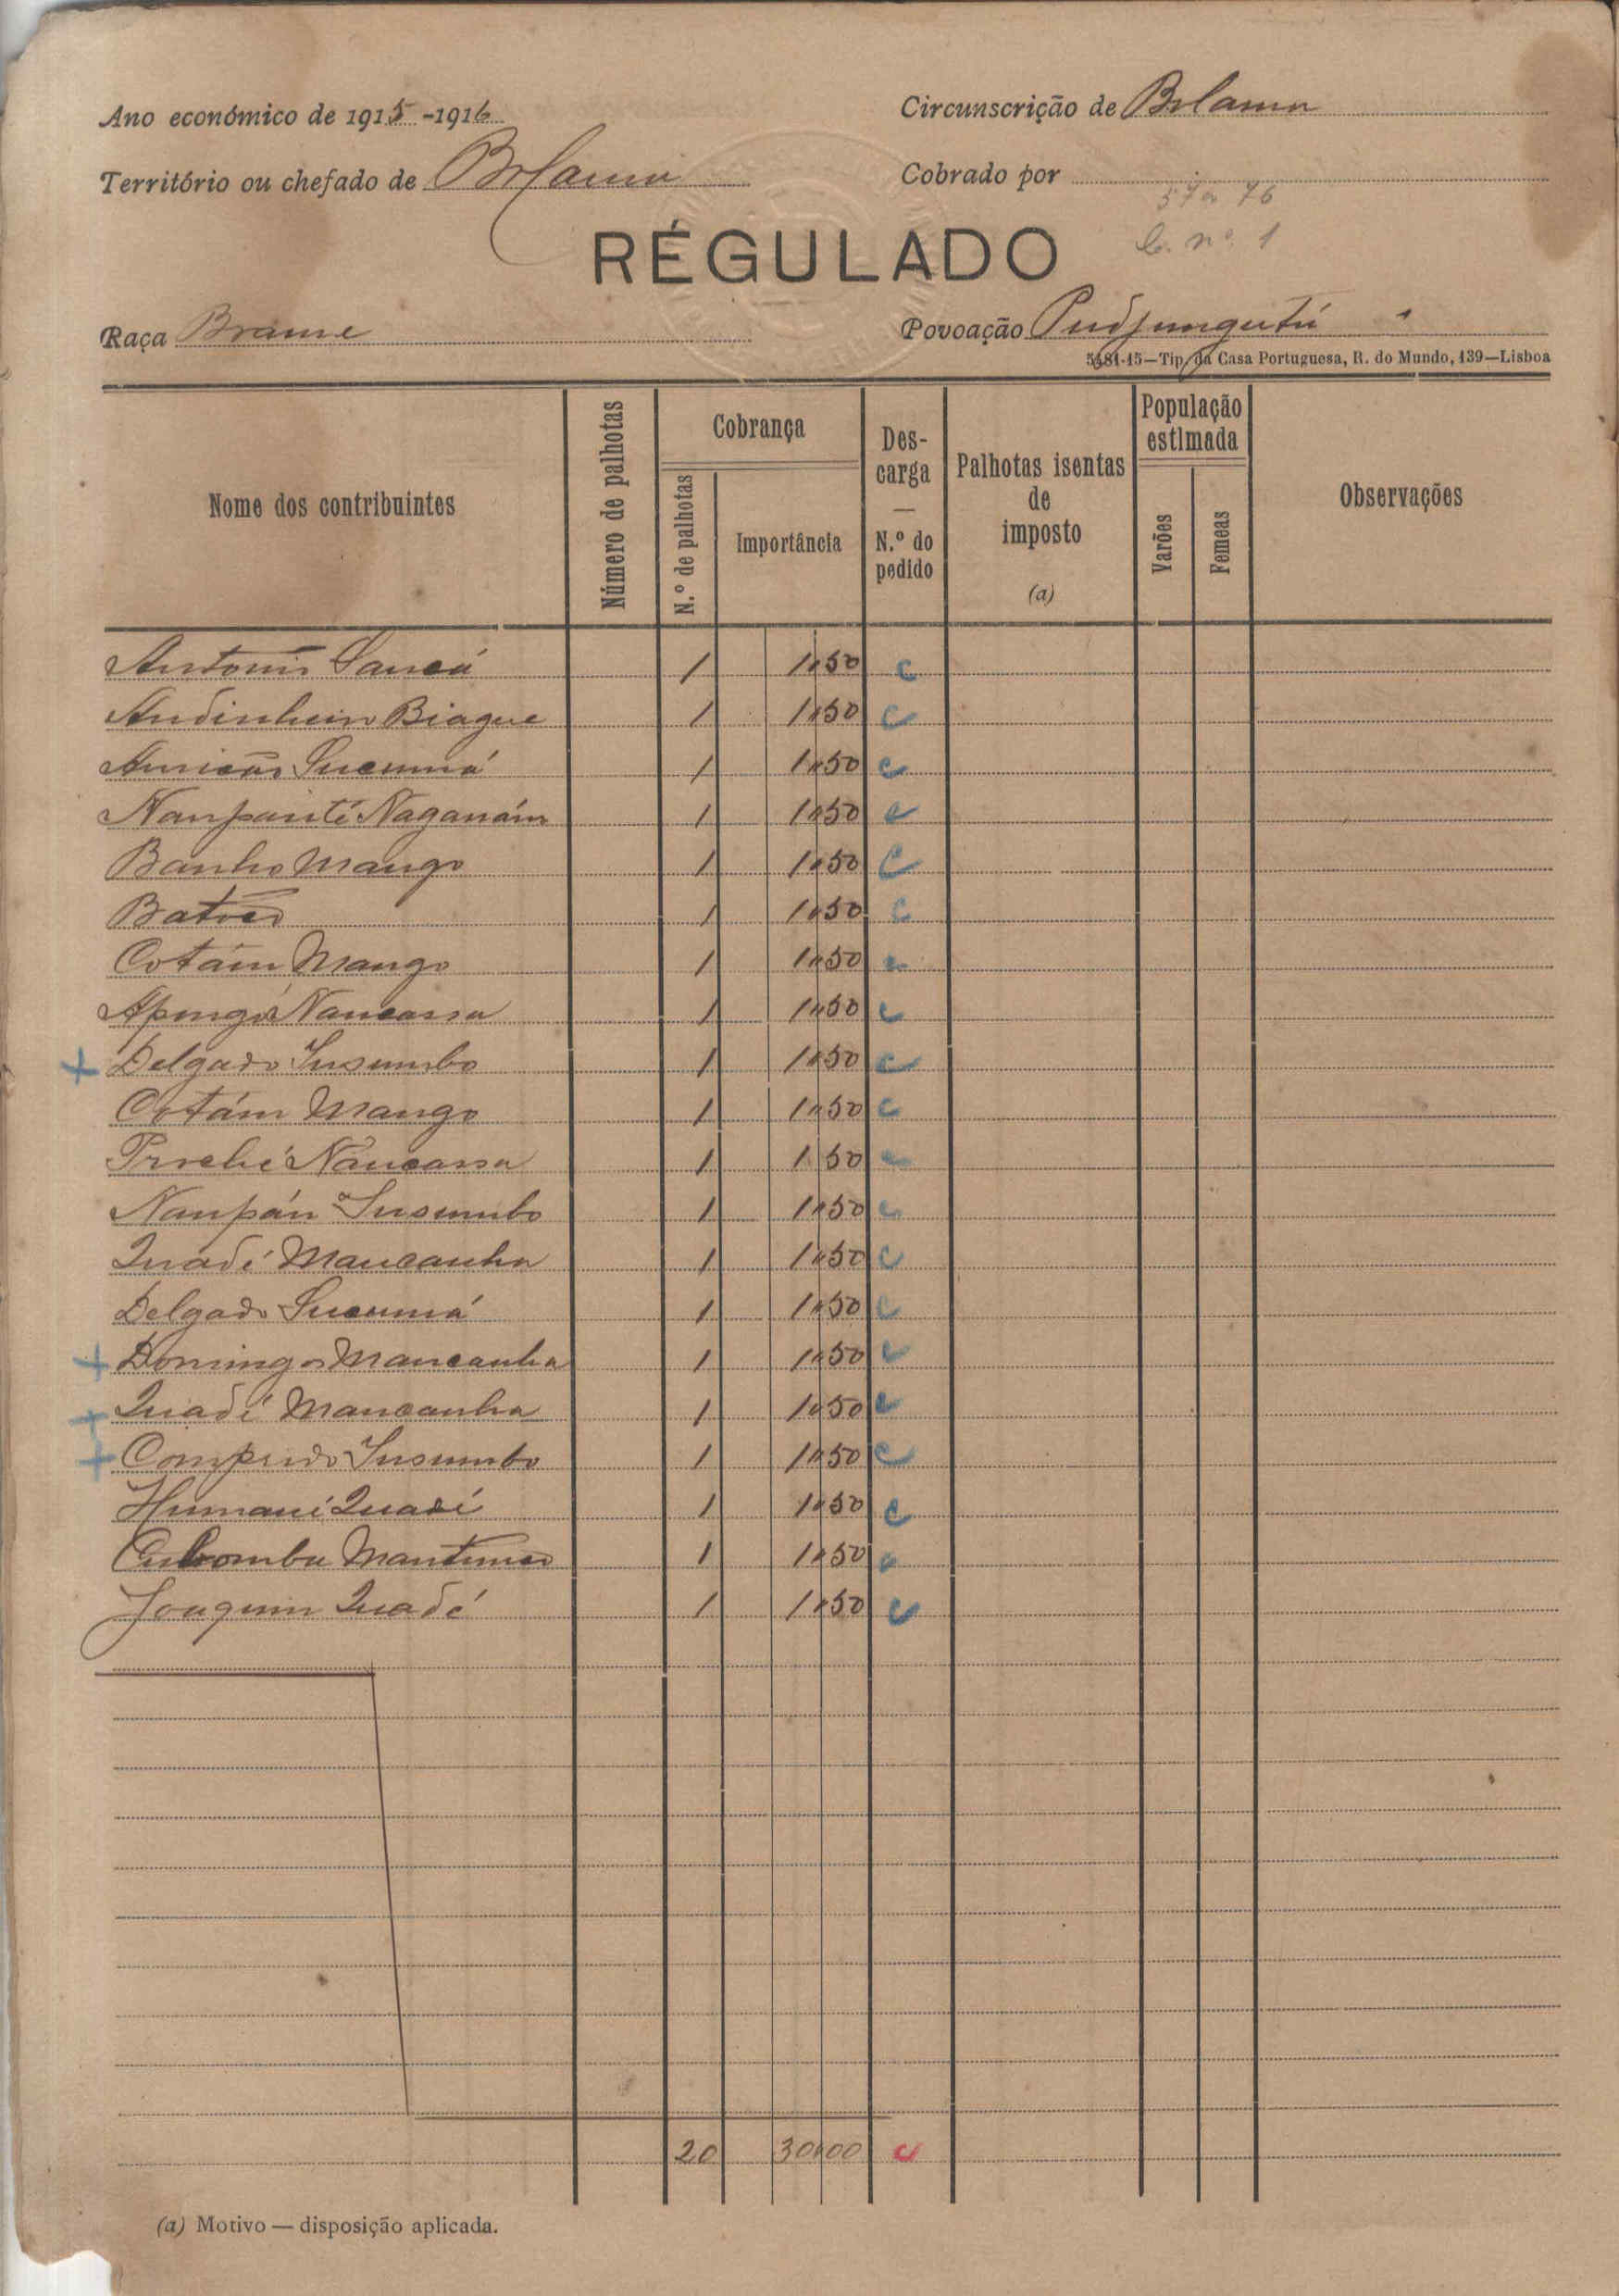 Ano económico de 1915-1916
Circunscrição de Bolama
Território ou chefado de Bolama
Cobrado por
57 a 76
L. nº 1
RÉGULADO
Raça Brame
Povoação Pudjungutú
5481-15—Tip. da Casa Portuguesa, R. do Mundo, 139—Lisboa
Nome dos contribuintes
Número de palhotas
Cobrança
N.º de palhotas
Importância
Descarga — N.º do pedido
Palhotas isentas de imposto (a)
População estimada
Varões
Femeas
Observações
Antonio Sancá 1 1"50 c
Biague 1 1"50 c
Sucumá 1 1"50 c
Nanpanté Naganám 1 1"50 c
Banho Mango 1 1"50 c
1 1"50 c
Cotám Mango 1 1"50 c
Nancassa 1 1"50 c
+ Delgado Insumbo 1 1"50 c
Cotám Mango 1 1"50 c
Nancassa 1 1 50 c
Nanpán Insumbo 1 1"50 c
Quadé Mancanha 1 1"50 c
Delgado Sucumá 1 1"50 c
+ Domingos Mancanha 1 1"50 c
+ Quadé Mancanha 1 1"50 c
+ Comprido Insumbo 1 1"50 c
Humani Quadé 1 1"50 c
1 1"50 c
Joaquim Quadé 1 1"50 c
20 30"00 c
(a) Motivo — disposição aplicada.